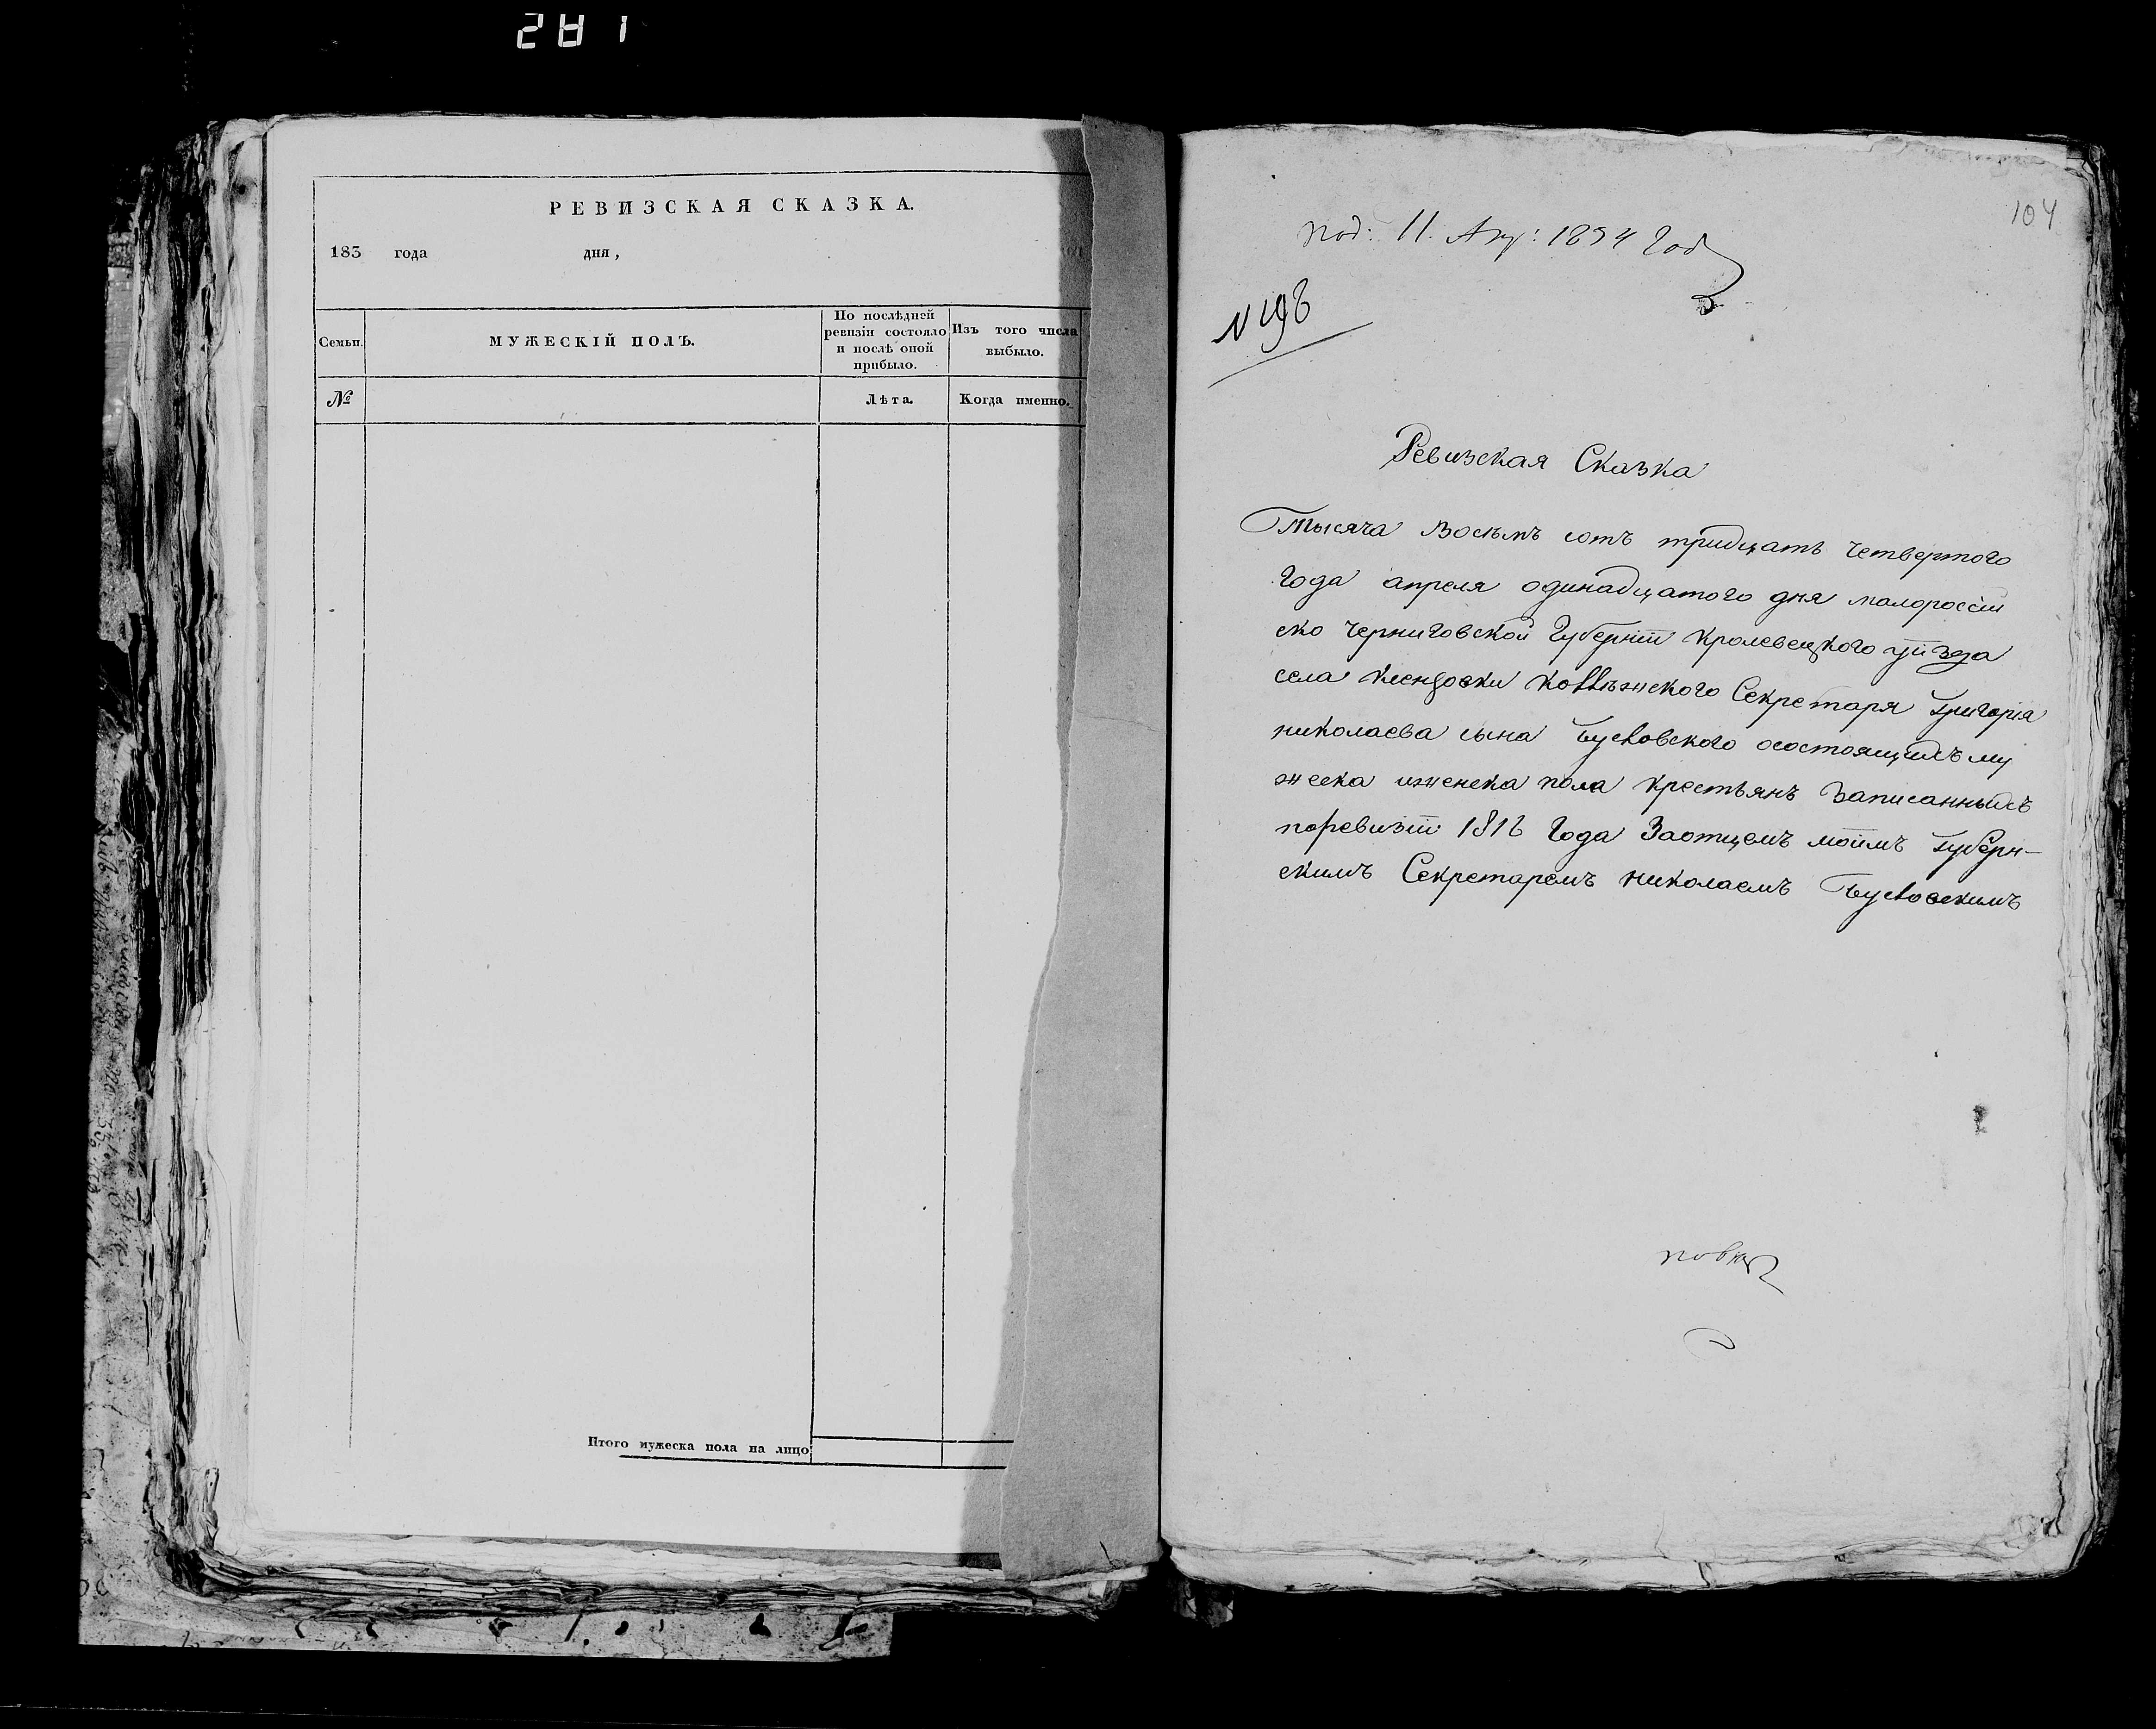 281
РЕВИЗСКАЯ СКАЗКА.
183 года дня,
Семьи.
МУЖЕСКІЙ ПОЛЪ.
По послѣдней
ревизіи состояло
и послѣ оной
прибыло.
Изъ того числа
выбыло.
№
Лѣта.
Когда именно.
Итого мужеска пола на лицо
104
под: 11. Апр: 1834 год
Ревизская Сказка
Тысяча Восъмъ сотъ тридцать четвертого
года апреля одинадцатого дня малороссій
ско черниговской Губерніи Кролевецкого уѣзда
села Секретаря Григорія
николаева сына осостоящихъ му
жеска иженска пола крестьянъ Записанныхъ
поревизіи 1816 Года Заотцемъ моимъ Губерн-
скимъ Секретаремъ николаемъ